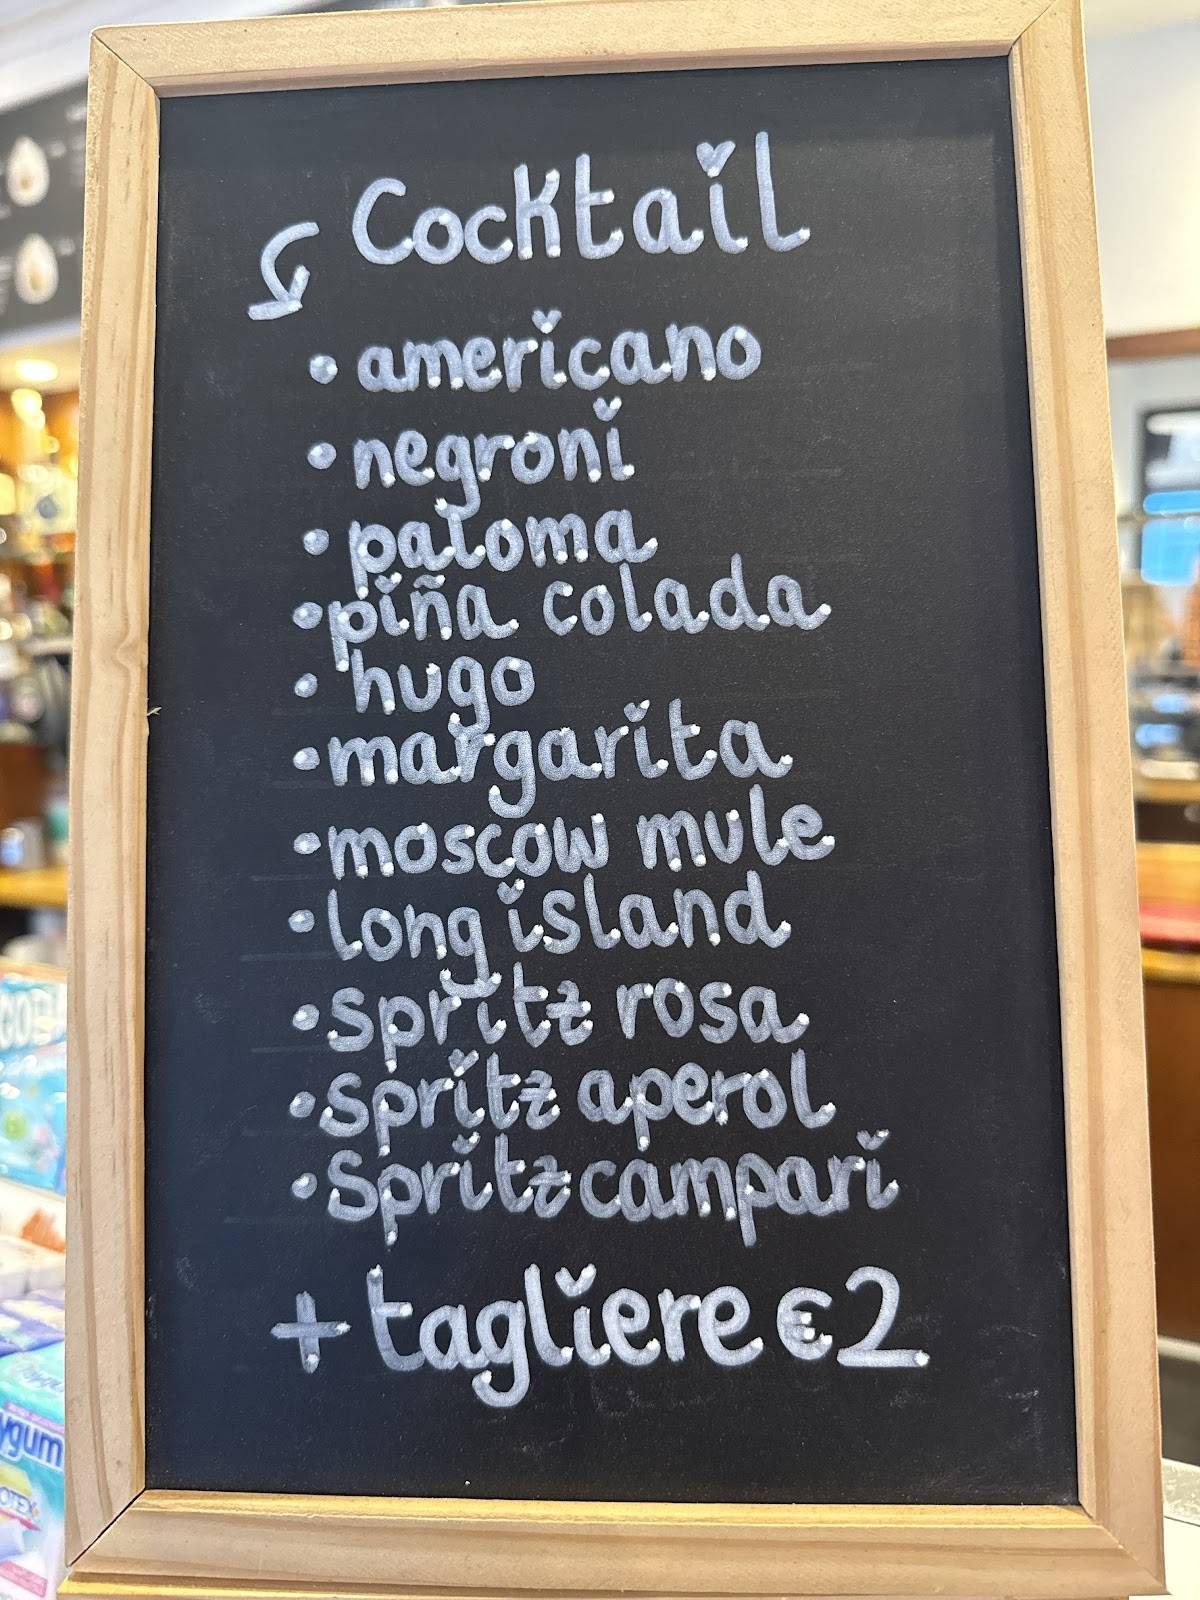 Cocktail
• americano
• negroni
• paloma
• piña colada
• hugo
• margarita
• moscow mule
• long island
• spritz rosa
• spritz aperol
• spritz campari
+ tagliere €2
ygum